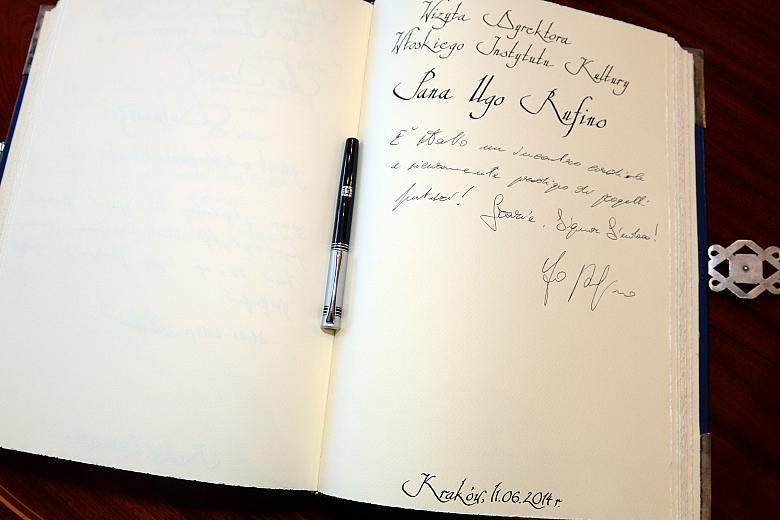 Wizyta Dyrektora
Włoskiego Instytutu Kultury
Pana Ugo Rufino
È stato un incontro cordiale
e sicuramente prodigo di progetti
futuri! Grazie, Signor Sindaco!
Kraków, 11.06.2014 r.